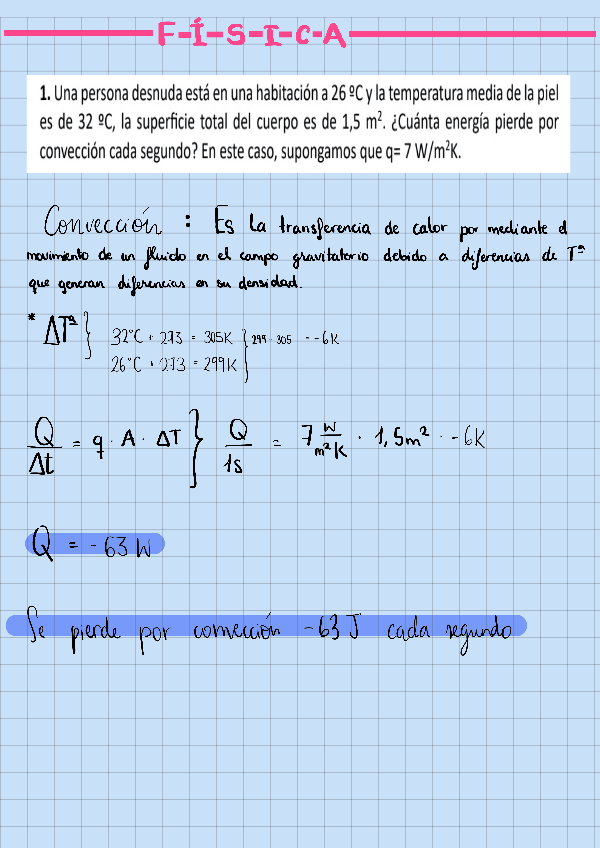 F-Í-S-I-C-A
1. Una persona desnuda está en una habitación a 26 ºC y la temperatura media de la piel
es de 32 ºC, la superficie total del cuerpo es de 1,5 m². ¿Cuánta energía pierde por
convección cada segundo? En este caso, supongamos que q= 7 W/m²K.
Convección : Es la transferencia de calor por mediante el
movimiento de un fluido en el campo gravitatorio debido a diferencias de Tª
que generan diferencias en su densidad.
* ΔTª } 32°C + 273 = 305K } 299 - 305 = -6K
26°C + 273 = 299K
Q/Δt = q · A · ΔT } Q/1s = 7 W/m²K · 1,5m² · -6K
Q = -63 W
Se pierde por convección -63 J cada segundo